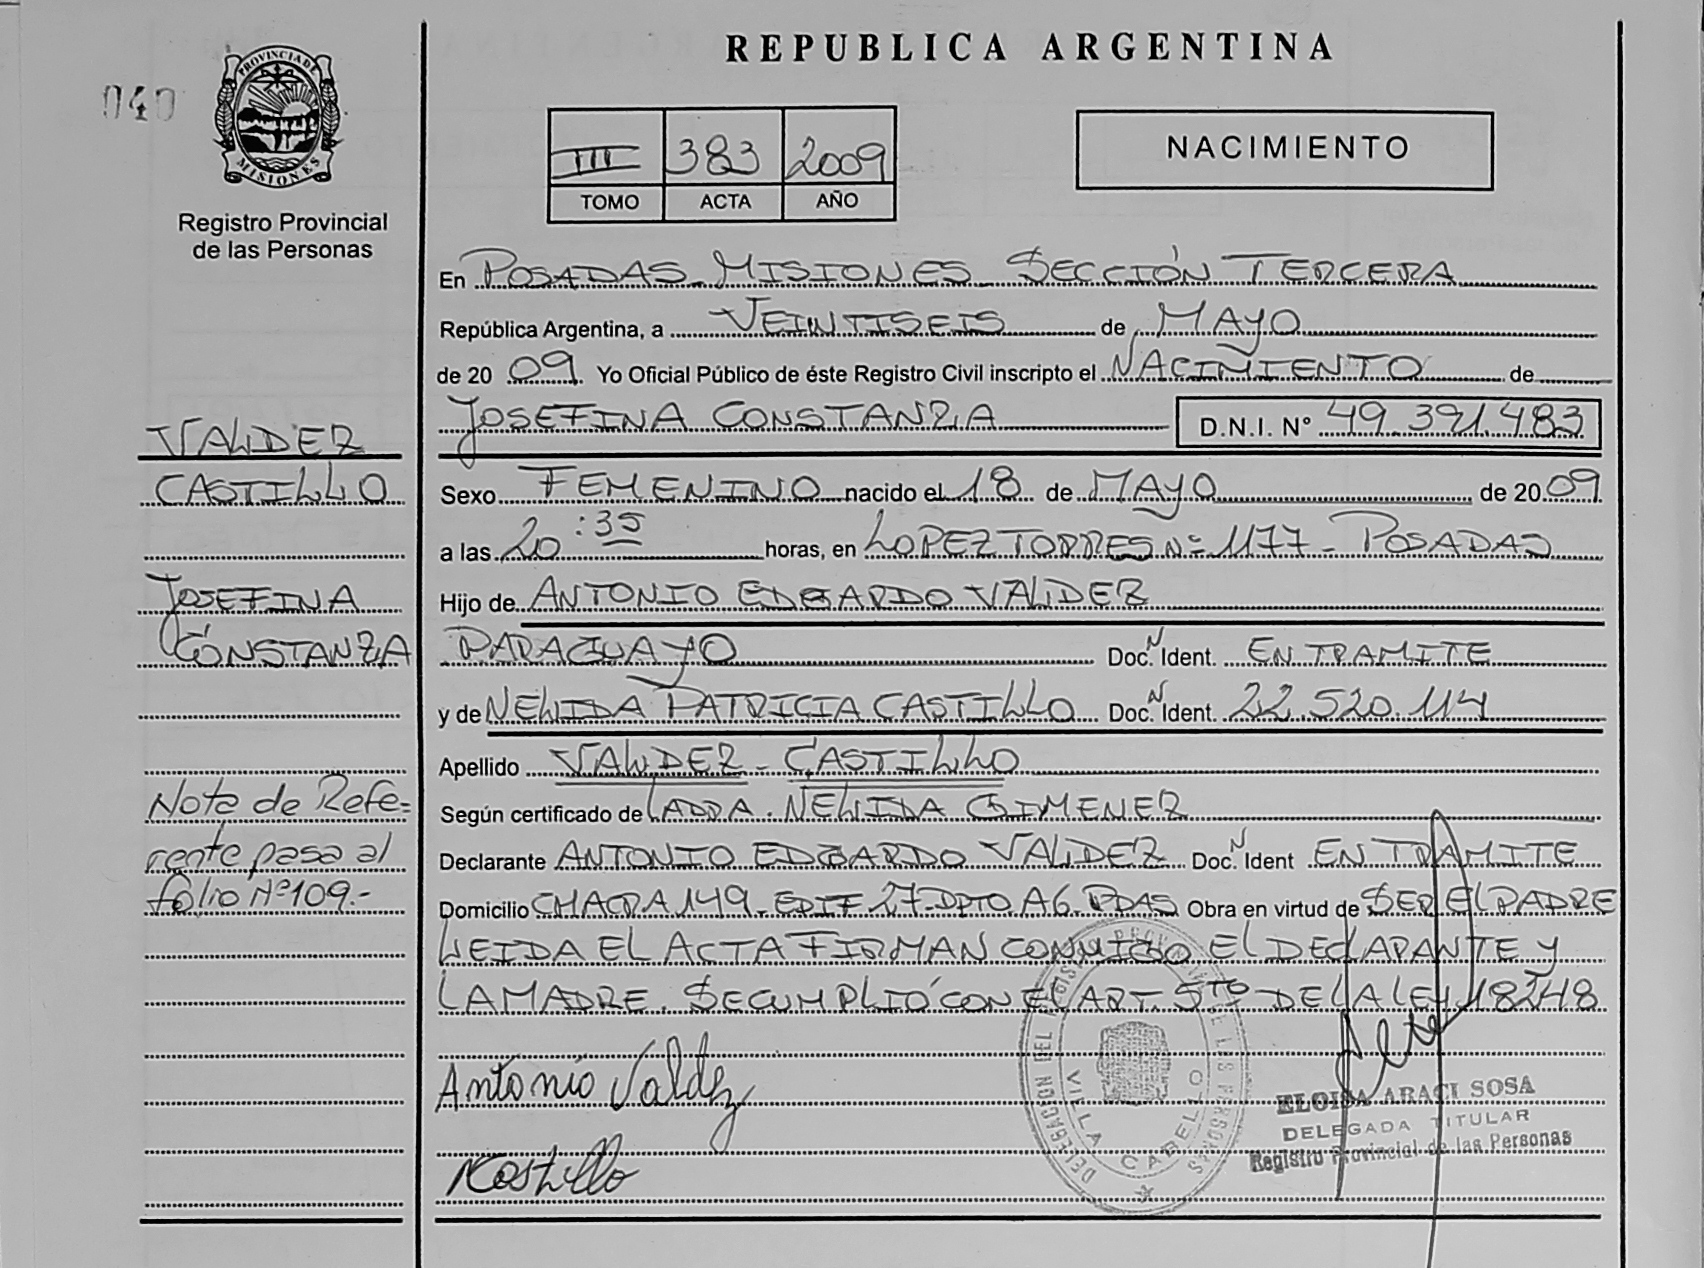 REPUBLICA ARGENTINA
040
PROVINCIA DE MISIONES
Registro Provincial
de las Personas
III 383 2009
TOMO ACTA AÑO
NACIMIENTO
En POSADAS_MISIONES_SECCIÓN TERCERA
República Argentina, a VEINTISEIS de MAYO
de 20 09 Yo Oficial Público de éste Registro Civil inscripto el NACIMIENTO de
JOSEFINA CONSTANZA D.N.I. Nº 49.391.483
Sexo FEMENINO nacido el 18 de MAYO de 20 09
a las 20:35 horas, en LOPEZ TORRES Nº 1177_ POSADAS
Hijo de ANTONIO EDGARDO VALDEZ
PARAGUAYO Doc. N Ident. EN TRAMITE
y de NELIDA PATRICIA CASTILLO Doc. N Ident. 22.520.114
Apellido VALDEZ - CASTILLO
Según certificado de LA DRA. NELIDA GIMENEZ
Declarante ANTONIO EDGARDO VALDEZ Doc. N Ident EN TRAMITE
Domicilio CHACRA 149_EDIF 27_DPTO. A6_PDAS Obra en virtud de SER EL PADRE
LEIDA EL ACTA FIRMAN CONMIGO EL DECLARANTE Y
LA MADRE. SE CUMPLIÓ CON EL ART. 5TO DE LA LEY 18248
Antonio Valdez
NCastillo
VALDEZ
CASTILLO
JOSEFINA
CONSTANZA
Nota de Refe=
rente pasa al
folio Nº 109.-
DELEGACION DEL REGISTRO PROVINCIAL DE LAS PERSONAS
VILLA CABELLO
ELOISA ARACI SOSA
DELEGADA TITULAR
Registro Provincial de las Personas